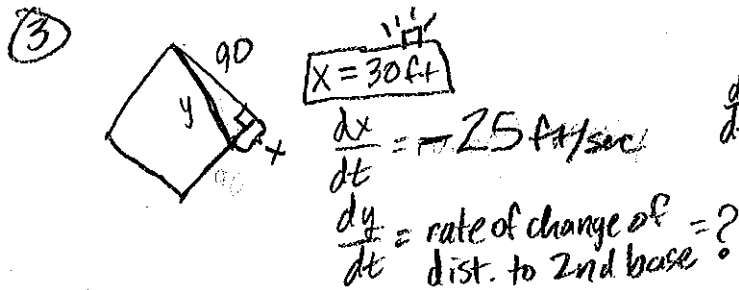 ③
90
y
x
90
x = 30 ft
dx/dt = -25 ft/sec
dy/dt = rate of change of dist. to 2nd base = ?